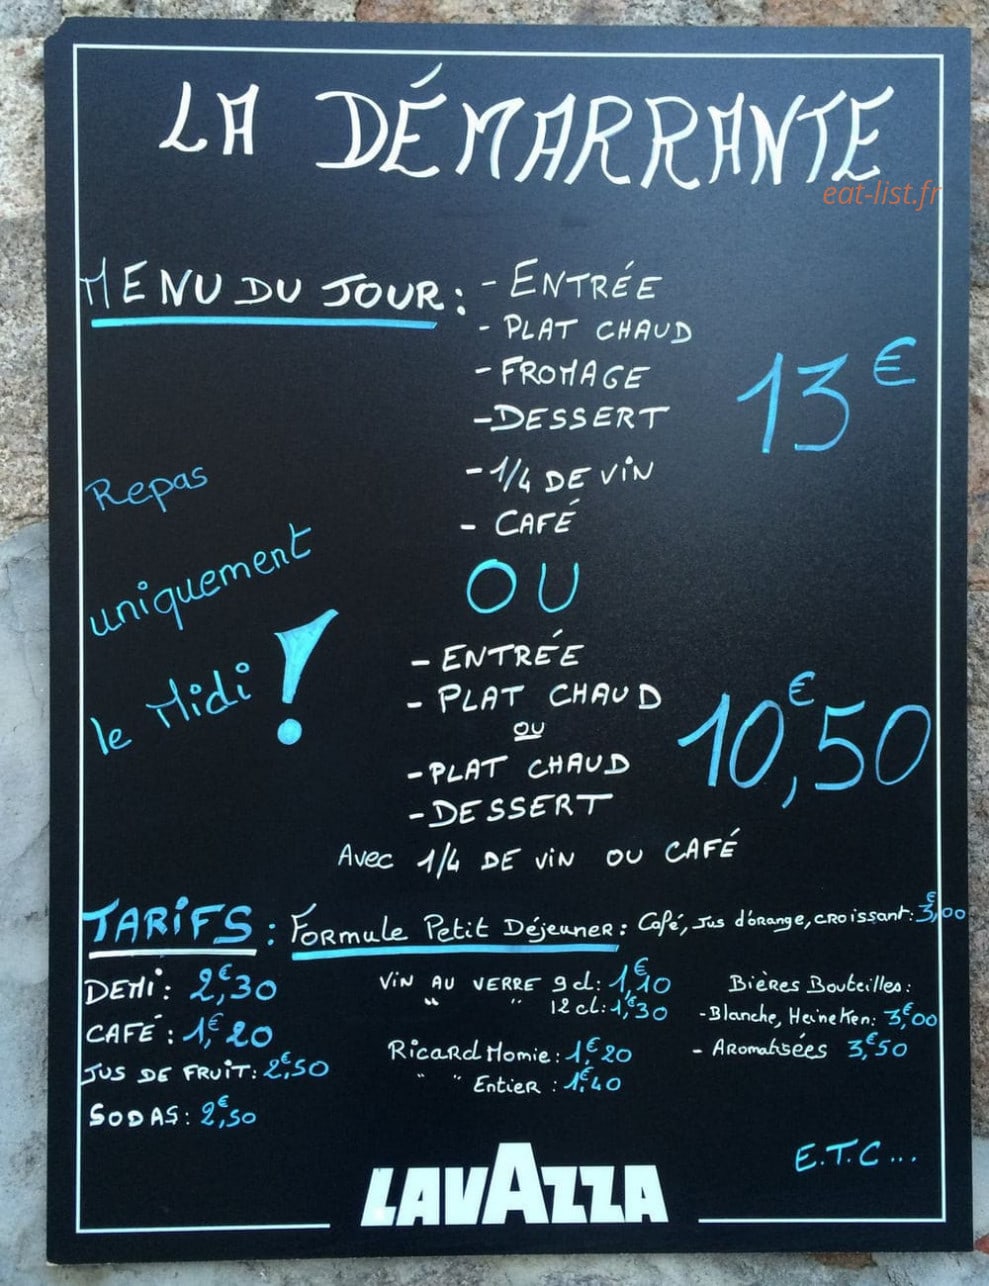 LA DÉMARRANTE
eat-list.fr
MENU DU JOUR : - ENTRÉE
- PLAT CHAUD
- FROMAGE
- DESSERT
13€
- 1/4 DE ViN
- CAFÉ
Repas
uniquement
le Midi !
OU
- ENTRÉE
- PLAT CHAUD
ou
- PLAT CHAUD
- DESSERT
10€,50
Avec 1/4 DE ViN OU CAFÉ
TARiFS : Formule Petit Déjeuner : Café, Jus d'orange, croissant : 3€,00
DEMi : 2,€30
CAFÉ : 1,€20
JUS DE FRUIT : 2,€50
SODAS : 2,€50
ViN AU VERRE 9 cl : 1,€10
" " 12 cl : 1,€30
Ricard Momie : 1,€20
" " Entier : 1,€40
Bières Bouteilles :
- Blanche, Heineken : 3,€00
- Aromatisées 3,€50
E.T.C...
LAVAZZA